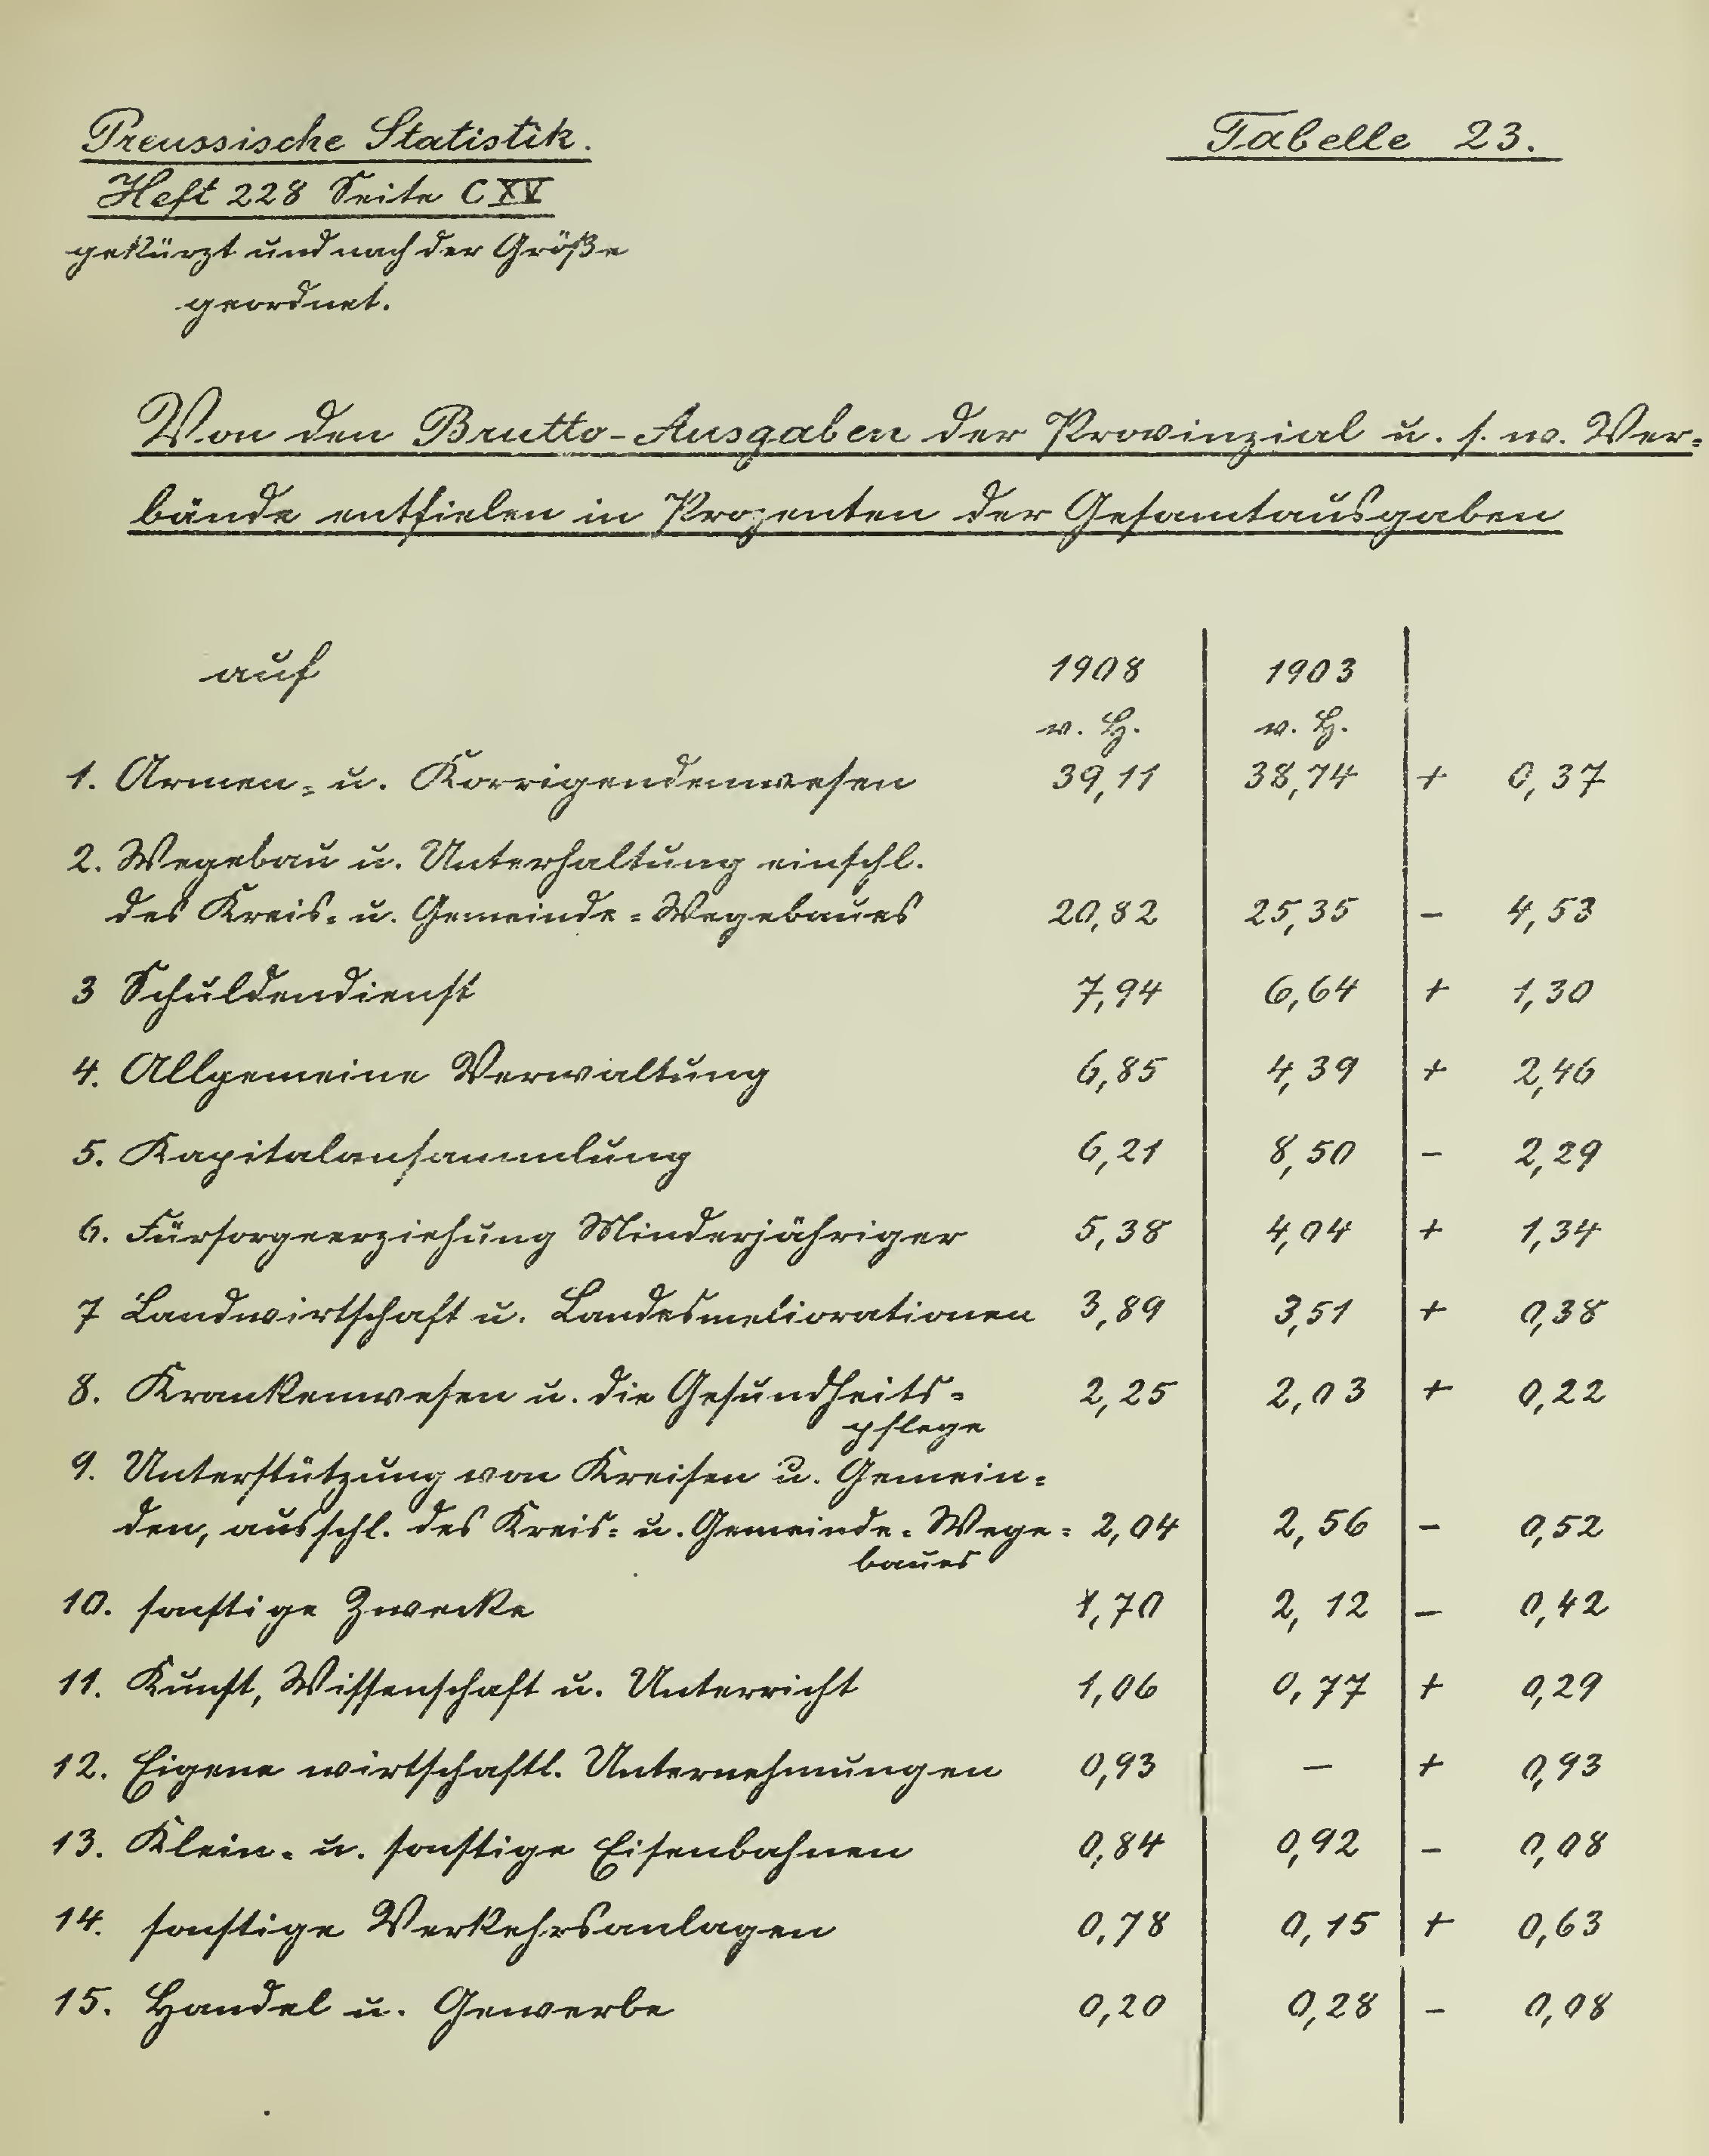 Preussische Statistik.
Tabelle 23.
Heft 228 Seite CXV
gekürzt und nach der Größe
geordnet.
Von den Brutto-Ausgaben der Provinzial u. s. w. Ver-
bände entfielen in Prozenten der Gesamtausgaben
auf 1908 1903
v. H. v. H.
1. Armen- u. Korrigendenwesen 39,11 38,74 + 0,37
2. Wegebau u. Unterhaltung einschl.
des Kreis- u. Gemeinde-Wegebaues 20,82 25,35 - 4,53
3 Schuldendienst 7,94 6,64 + 1,30
4. Allgemeine Verwaltung 6,85 4,39 + 2,46
5. Kapitalansammlung 6,21 8,50 - 2,29
6. Fürsorgeerziehung Minderjähriger 5,38 4,04 + 1,34
7 Landwirtschaft u. Landesmeliorationen 3,89 3,51 + 0,38
8. Krankenwesen u. die Gesundheits- 2,25 2,03 + 0,22
pflege
9. Unterstützung von Kreisen u. Gemein-
den, ausschl. des Kreis- u. Gemeinde-Wege- 2,04 2,56 - 0,52
baues
10. sonstige Zwecke 1,70 2,12 - 0,42
11. Kunst, Wissenschaft u. Unterricht 1,06 0,77 + 0,29
12. Eigene wirtschaftl. Unternehmungen 0,93 - + 0,93
13. Klein- u. sonstige Eisenbahnen 0,84 0,92 - 0,08
14. sonstige Verkehrsanlagen 0,78 0,15 + 0,63
15. Handel u. Gewerbe 0,20 0,28 - 0,08